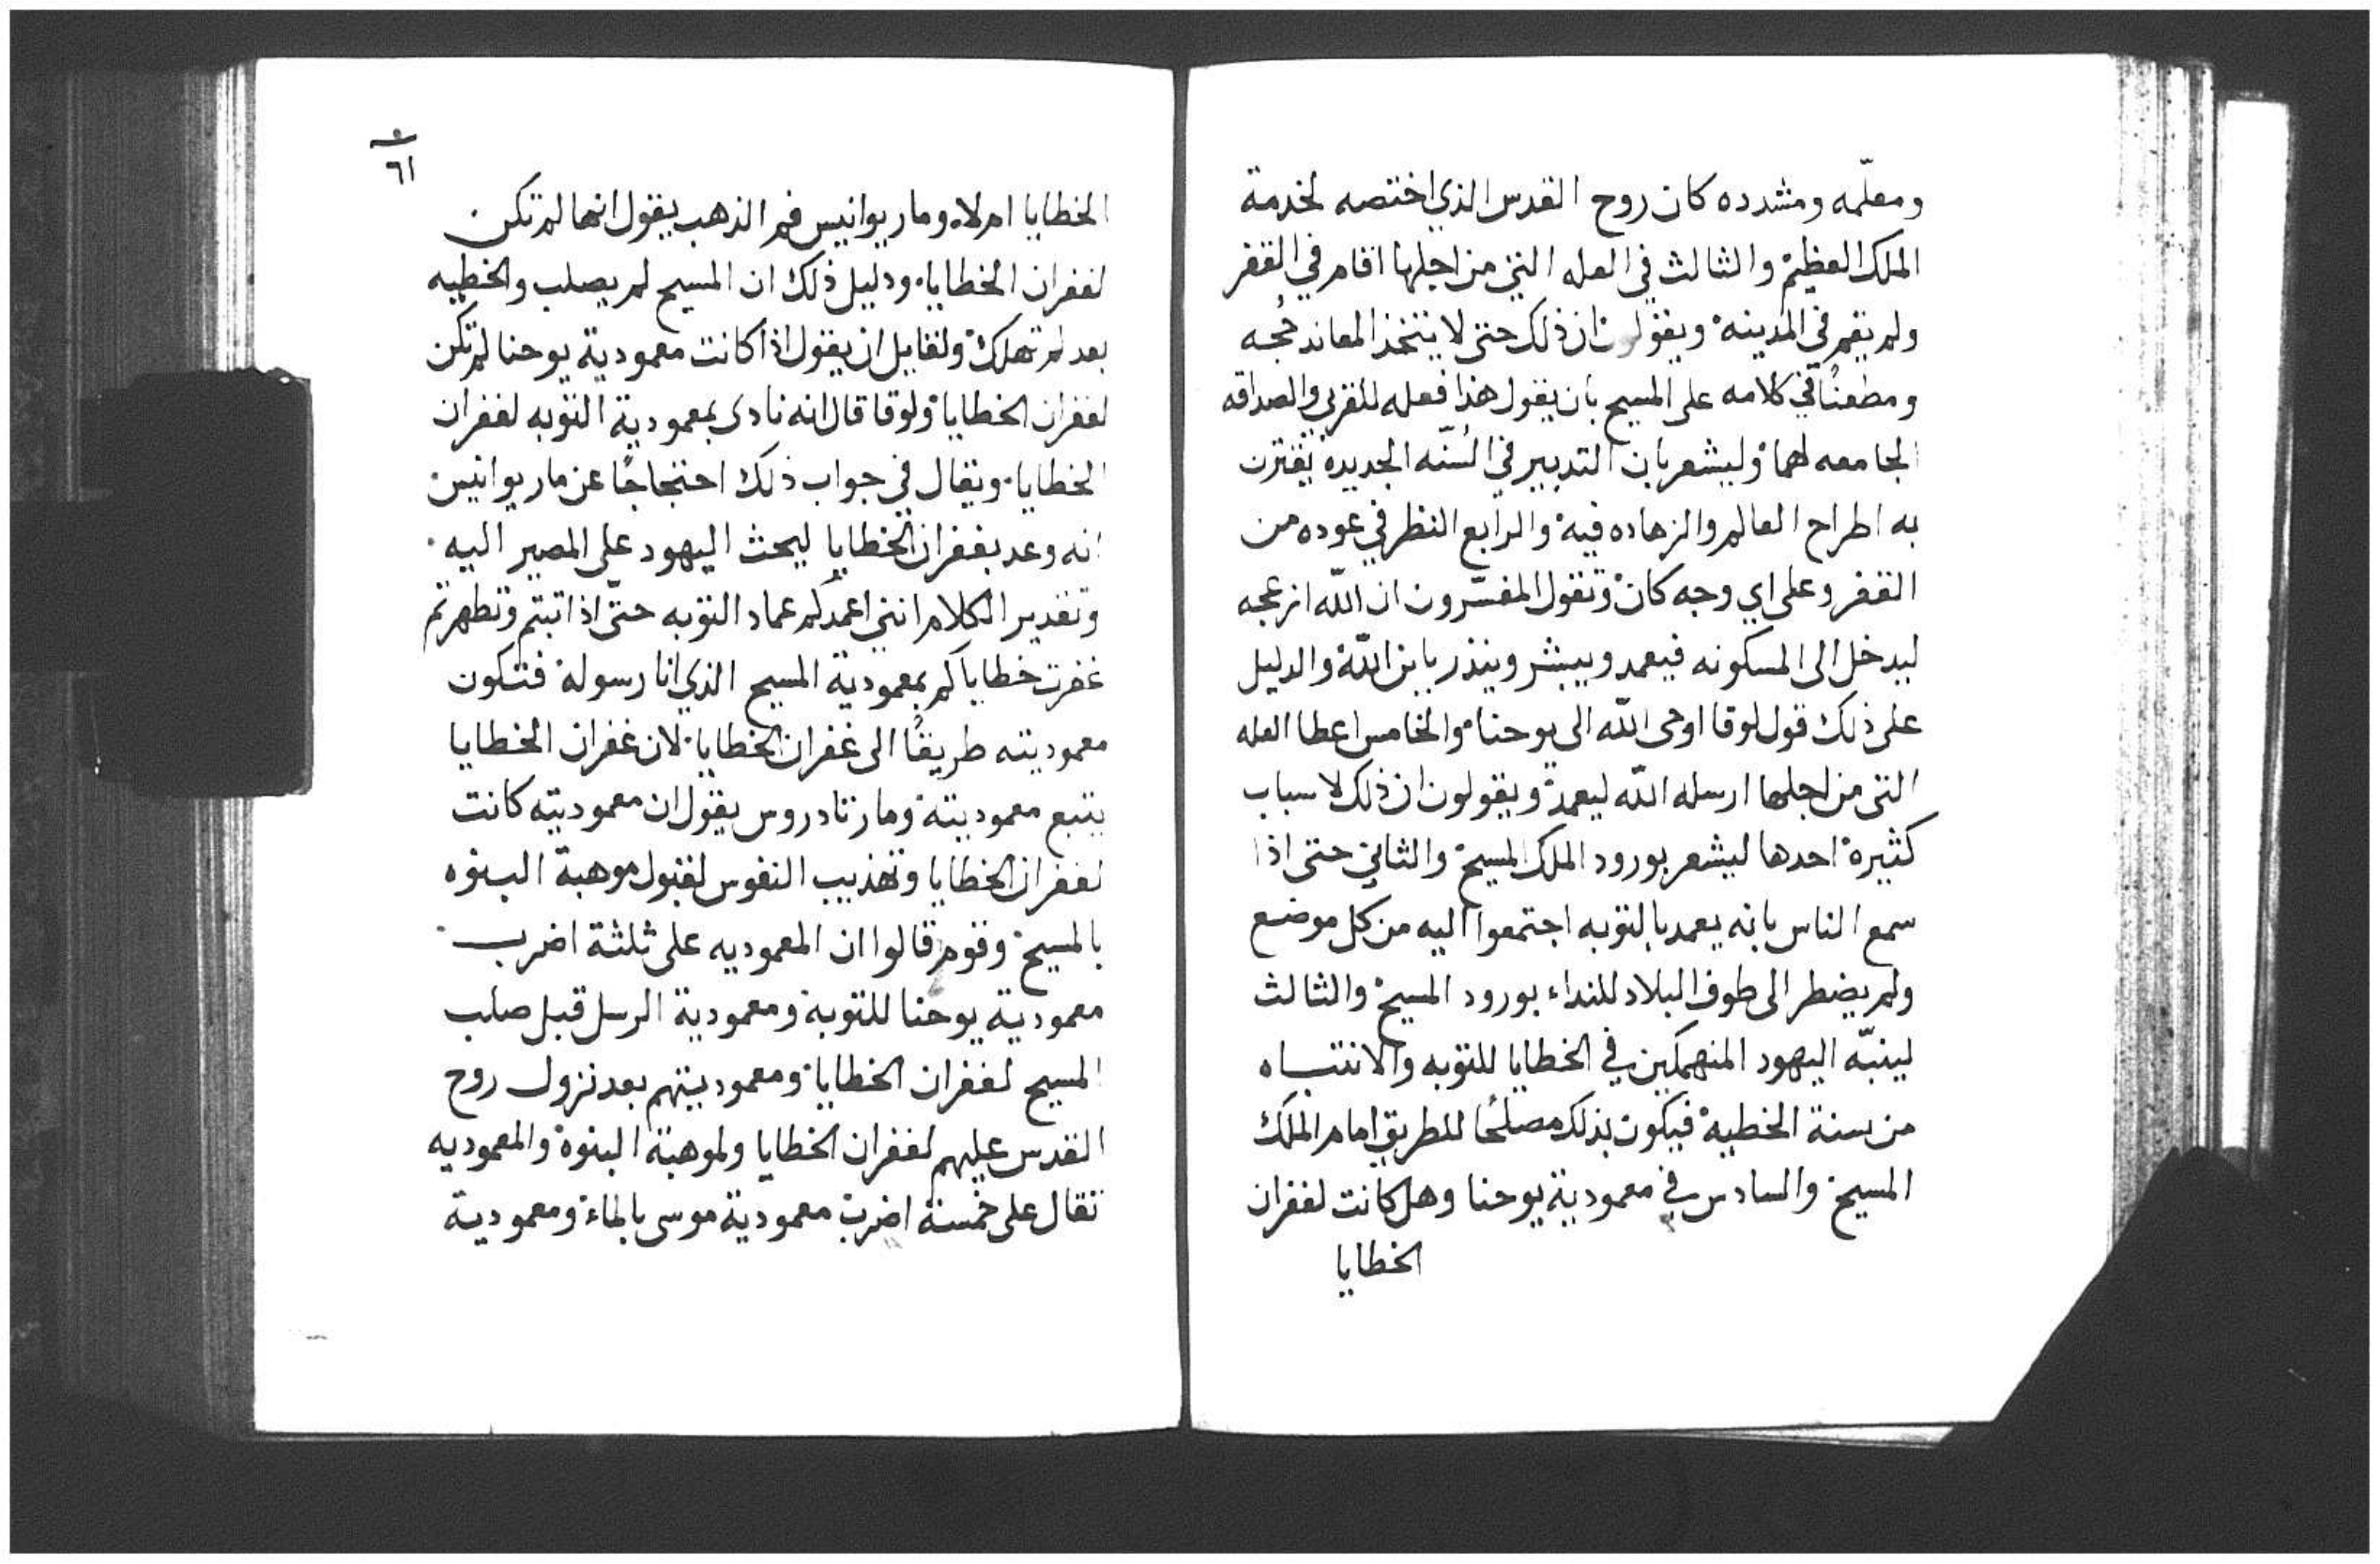 ومعلّمه ومشدده كان روح القدس الذي اختصه لخدمة
الملك العظيم والثالث في العله التي من اجلها اقام في القفر
ولم يقم في المدينه ويقولون ان ذلك حتى لا يتخذ المعاند حُجه
ومطعنًا في كلامه على المسيح بان يقول هذا فعله للقربى والصداقه
الجامعه لهما وليشعر بان التدبير في السُنّه الجديده يقترن
به اطراح العالم والزهاده فيه والرابع النظر في عوده من
القفر وعلى اي وجه كان وتقول المفسّرون ان اللّه ازعجه
ليدخل الى المسكونه فيعمد ويبشر وينذر بابن اللّه والدليل
على ذلك قول لوقا اوحى اللّه الى يوحنا والخامس اعطا العله
التي من اجلها ارسله اللّه ليعمد ويقولون ان ذلك لاسباب
كثيرة احدها ليشعر بورود الملك المسيح والثاني حتى اذا
سمع الناس بانه يعمد بالتوبه اجتمعوا اليه من كل موضع
ولم يضطر الى طوف البلاد للنداء بورود المسيح والثالث
لينبّه اليهود المنهمكين في الخطايا للتوبه والانتباه
من سنة الخطيه فيكون بذلك مصلحًا للطريق امام الملك
المسيح والسادس في معمودية يوحنا وهل كانت لغفران
الخطايا
٦١
الخطايا ام لا وماريوانيس فم الذهب يقول انها لم تكن
لغفران الخطايا ودليل ذلك ان المسيح لم يصلب والخطيه
بعد لم تهلك ولقايل ان يقول اذا كانت معمودية يوحنا لم تكن
لغفران الخطايا ولوقا قال انه نادى بمعمودية التوبه لغفران
الخطايا ويقال في جواب ذلك احتجاجًا عن ماريوانيس
انه وعد بغفران الخطايا ليحث اليهود على المصير اليه
وتقدير الكلام انني اعمدكم عماد التوبه حتّى اذا تبتم وتطهرتم
غفرت خطاياكم بمعمودية المسيح الذي انا رسوله فتكون
معموديته طريقًا الى غفران الخطايا لان غفران الخطايا
يتبع معموديته ومار تادروس يقول ان معموديته كانت
لغفران الخطايا وتهذيب النفوس لقبول موهبة البنوه
بالمسيح وقوم قالوا ان المعموديه على ثلثة اضرب
معمودية يوحنا للتوبة ومعمودية الرسل قبل صلب
المسيح لغفران الخطايا ومعموديتهم بعد نزول روح
القدس عليهم لغفران الخطايا ولموهبة البنوة والمعموديه
تقال على خمسة اضرب معمودية موسى بالماء ومعمودية